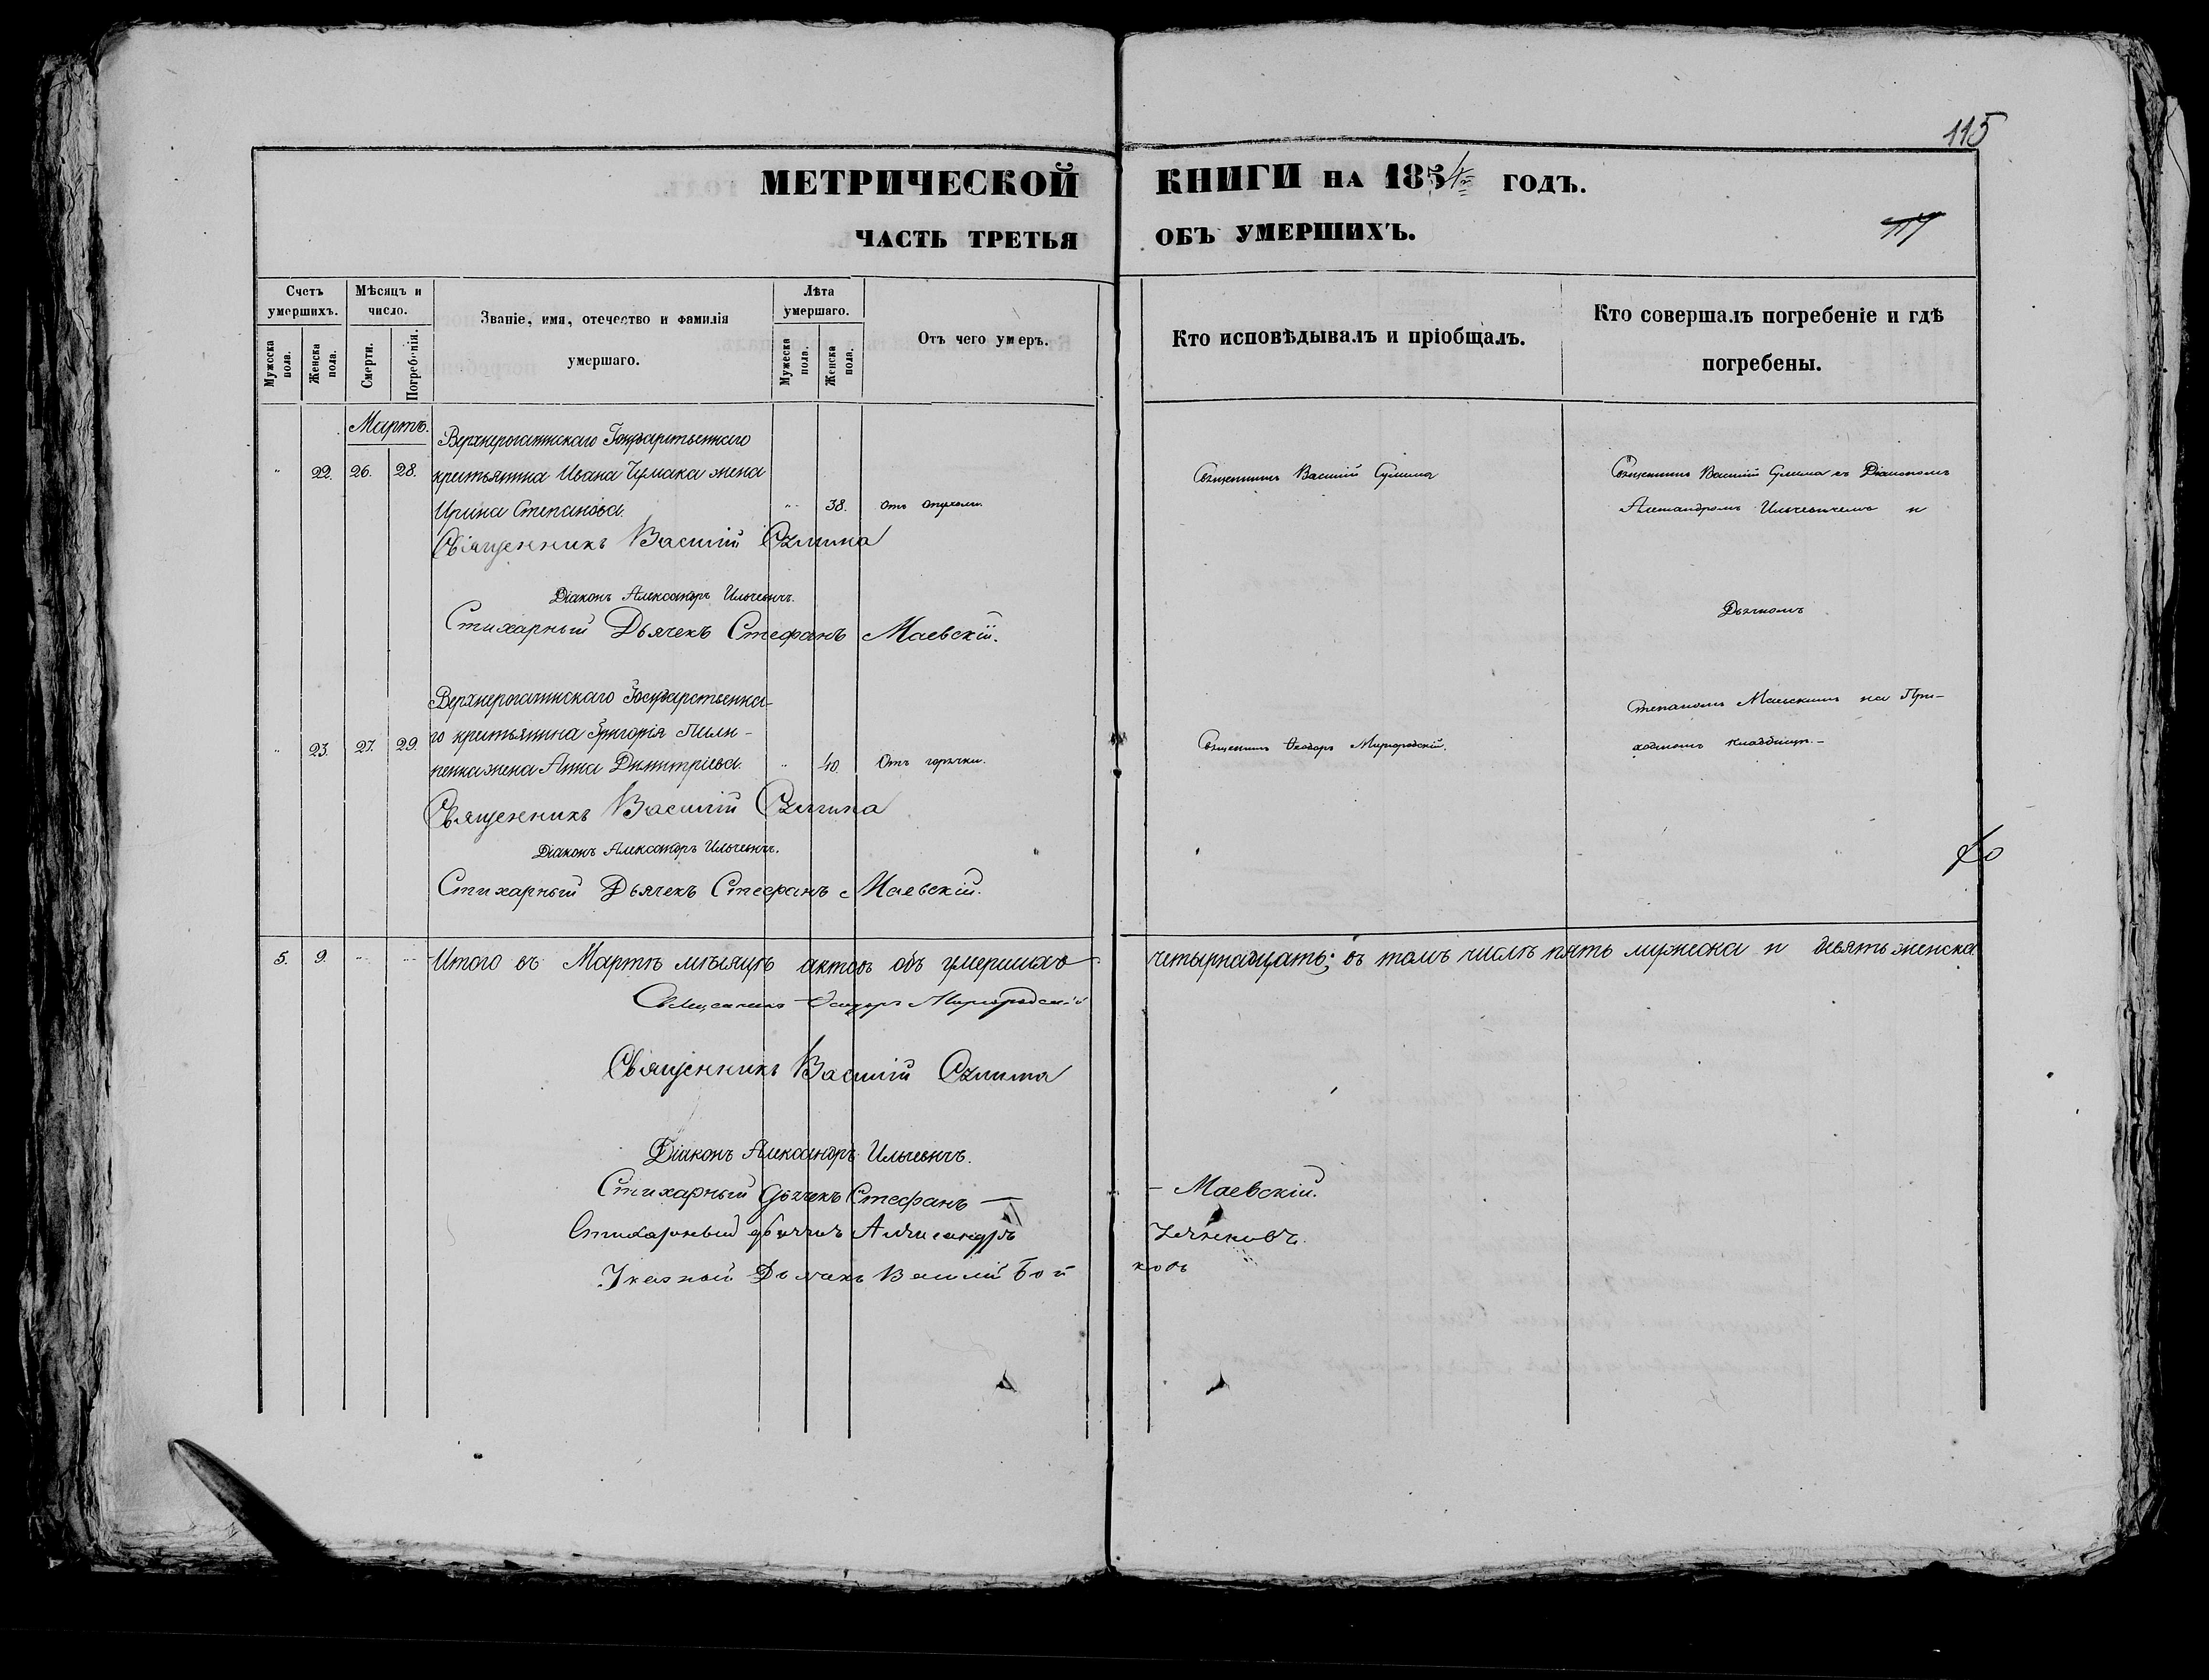 115
МЕТРИЧЕСКОЙ КНИГИ НА 1854й ГОДЪ.
ЧАСТЬ ТРЕТЬЯ ОБЪ УМЕРШИХЪ.
Счетъ умершихъ.
Мужеска пола.
Женска пола.
Мѣсяцъ и число.
Смерти.
Погребенія.
Званіе, имя, отечество и фамилія умершаго.
Лѣта умершаго.
Мужеска пола.
Женска пола.
Отъ чего умеръ.
Кто исповѣдывалъ и пріобщалъ.
Кто совершалъ погребеніе и гдѣ погребены.
Мартъ.
Верхнерогачикскаго Государственнаго
22. 26. 28. крестьянина Ивана Чумака жена
Ирина Степанова. 38. Отъ опухоли.
Священникъ Василій Сулима
Священникъ Василій Сулима съ Діакономъ
Александромъ Ильчевичемъ и
Священникъ Василій Сулима
Діаконъ Александръ Ильчевичъ.
Дьячкомъ
Стихарный Дьячекъ Стефанъ Маевскій.
Верхнерогачикскаго Государственна-
23. 27. 29. го крестьянина Григорія Пили-
пенка жена Анна Димитріева. 40. Отъ горячки.
Священникъ Ѳеодоръ Миргородскій.
Степаномъ Маевскимъ на При-
ходскомъ кладбищѣ.-
Священникъ Василій Сулима
Діаконъ Александръ Ильчевичъ.
Стихарный Дьячекъ Стефанъ Маевскій.
5. 9. Итого въ Мартѣ мѣсяцѣ актовъ объ умершихъ четырнадцать; въ томъ числѣ пять мужеска и девять женска.
Священникъ Ѳеодоръ Миргородскій
Священникъ Василій Сулима
Діаконъ Александръ Ильчевичъ.
Стихарный Дьячекъ Стефанъ — - Маевскій.
Стихарный дьячекъ Александръ
Указный Дьячекъ Василій Бой ковъ